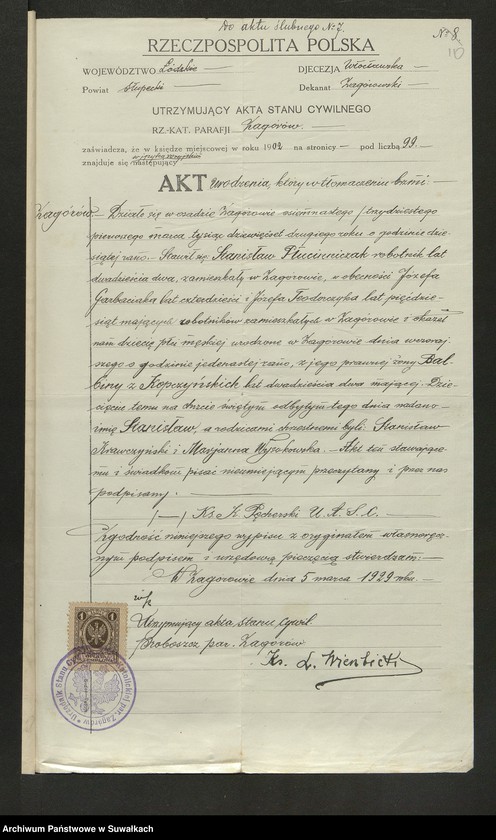 Do aktu ślubnego Nr 7.
Nr 8
10
RZECZPOSPOLITA POLSKA
WOJEWÓDZTWO Łódzkie DJECEZJA Włocławska
Powiat Słupecki Dekanat Zagórowski
UTRZYMUJĄCY AKTA STANU CYWILNEGO
RZ.-KAT. PARAFJI Zagórów.
zaświadcza, że w księdze miejscowej w roku 1902 na stronicy — pod liczbą 99.
w języku rosyjskim
znajduje się następujący
AKT urodzenia, który w tłomaczeniu brzmi —
Zagórów — Działo się w osadzie Zagórowie osiemnastego / trzydziestego
pierwszego marca tysiąc dziewięćset drugiego roku o godzinie dzie-
siątej rano. — Stawił się Stanisław Płucienniczak robotnik lat
dwadzieścia dwa, zamieszkały w Zagórowie, w obecności Józefa
Garbacińskiego lat czterdzieści i Józefa Teodorczyka lat pięćdzie-
siąt mających robotników zamieszkałych w Zagórowie i okazał
nam dziecię płci męskiej urodzone w Zagórowie dnia wczoraj-
szego o godzinie jedenastej rano, z jego prawnej żony Bal-
biny z Kopczyńskich lat dwadzieścia dwa mającej. Dzie-
cięciu temu na chrzcie świętym odbytym tego dnia nadano
imię Stanisław, a rodzicami chrzestnemi byli: Stanisław
Krawczyński i Marjanna Wysokowska. — Akt ten stawające-
mu i świadkom pisać nieumiejącym przeczytany i przez nas
podpisany. —
(—) Ks. Pęcherski U. A. S. C. —
Zgodność niniejszego wypisu z oryginałem własnoręcz-
nym podpisem i urzędową pieczęcią stwierdzam: —
W Zagórowie dnia 5 marca 1929 roku. —
Utrzymujący akta stanu cywil.
Proboszcz par. Zagórów
Ks. L. Wierbicki
1 1
Urzędnik Stanu par. Zagórów
Archiwum Państwowe w Suwałkach